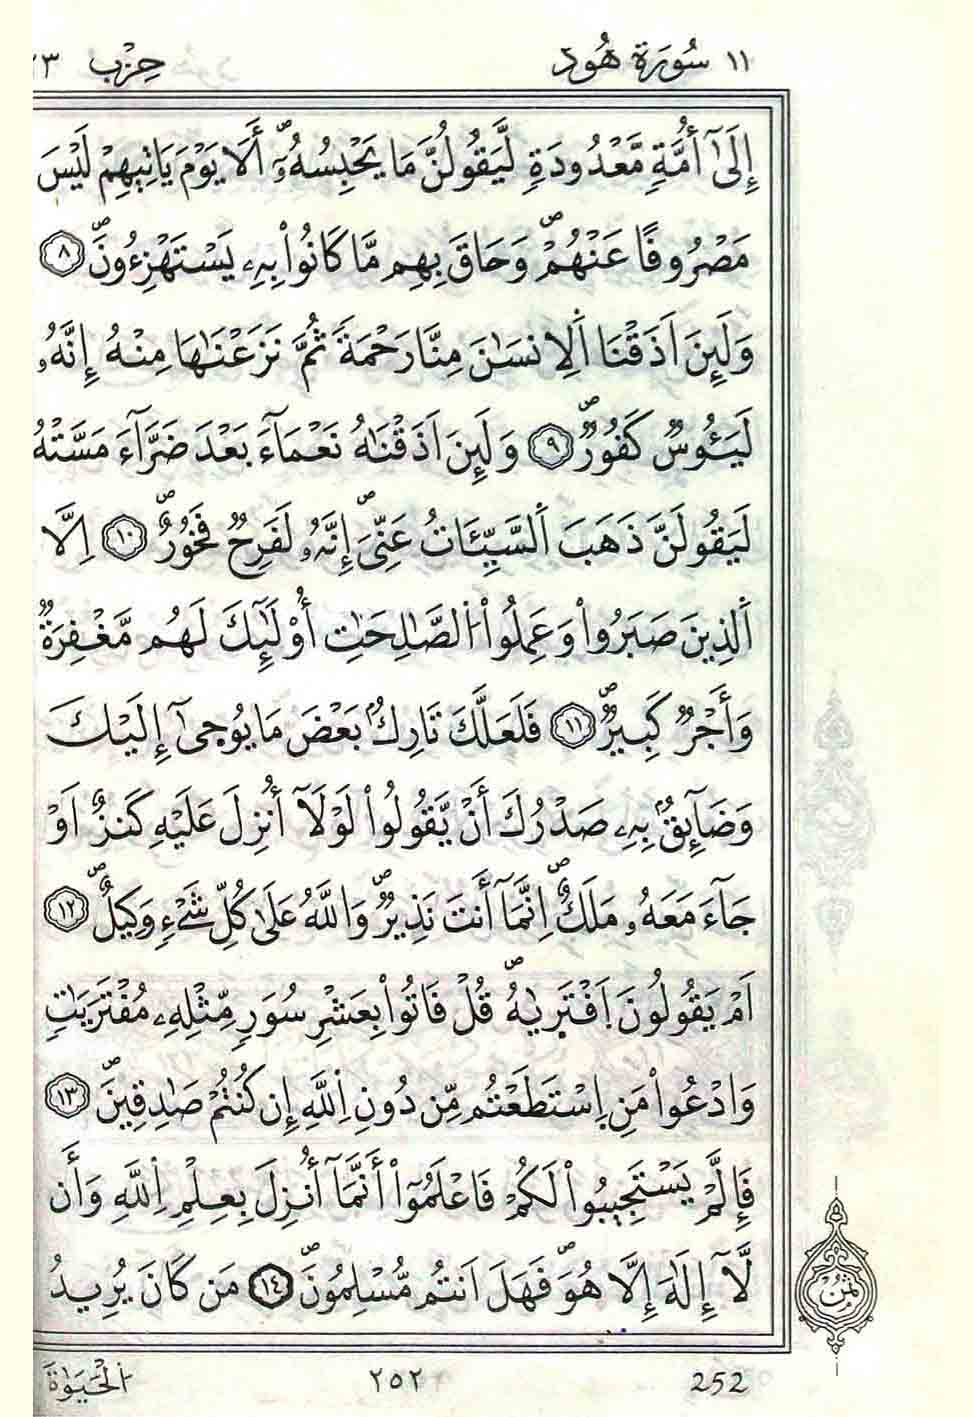 ١١ سُورَةُ هُود حِزْب ٢٣
إِلَىٰٓ أُمَّةٖ مَّعْدُودَةٖ لَّيَقُولُنَّ مَا يَحْبِسُهُۥٓۖ أَلَا يَوْمَ يَاتِيهِمْ لَيْسَ
مَصْرُوفًا عَنْهُمْۖ وَحَاقَ بِهِم مَّا كَانُواْ بِهِۦ يَسْتَهْزِءُونَۖ ٨
وَلَئِنَ اَذَقْنَا اَلِانسَٰنَ مِنَّا رَحْمَةٗ ثُمَّ نَزَعْنَٰهَا مِنْهُ إِنَّهُۥ
لَيَـُٔوسٞ كَفُورٞۖ ٩ وَلَئِنَ اَذَقْنَٰهُ نَعْمَآءَ بَعْدَ ضَرَّآءَ مَسَّتْهُ
لَيَقُولَنَّ ذَهَبَ اَلسَّيِّـَٔاتُ عَنِّيَۖ إِنَّهُۥ لَفَرِحٞ فَخُورٌۖ ١٠ اِلَّا
اَلذِينَ صَبَرُواْ وَعَمِلُواْ اُلصَّٰلِحَٰتِ أُوْلَٰٓئِكَ لَهُم مَّغْفِرَةٞ
وَأَجْرٞ كَبِيرٞۖ ١١ فَلَعَلَّكَ تَارِكُۢ بَعْضَ مَا يُوحَىٰٓ إِلَيْكَ
وَضَآئِقُۢ بِهِۦ صَدْرُكَ أَنْ يَّقُولُواْ لَوْلَآ أُنزِلَ عَلَيْهِ كَنزٌ اَوْ
جَآءَ مَعَهُۥ مَلَكٌۖ اِنَّمَآ أَنتَ نَذِيرٞۖ وَاللَّهُ عَلَىٰ كُلِّ شَےْءٖ وَكِيلٌۖ ١٢
اَمْ يَقُولُونَ اَفْتَر۪يٰهُۖ قُلْ فَاتُواْ بِعَشْرِ سُوَرٖ مِّثْلِهِۦ مُفْتَرَيَٰتٖ
وَادْعُواْ مَنِ اِسْتَطَعْتُم مِّن دُونِ اِللَّهِ إِن كُنتُمْ صَٰدِقِينَۖ ١٣
فَإِلَّمْ يَسْتَجِيبُواْ لَكُمْ فَاعْلَمُوٓاْ أَنَّمَآ أُنزِلَ بِعِلْمِ اِللَّهِ وَأَن
لَّآ إِلَٰهَ إِلَّا هُوَۖ فَهَلَ اَنتُم مُّسْلِمُونَۖ ١٤ مَن كَانَ يُرِيدُ
ثُمُن
252 ٢٥٢ اَلْحَيَوٰةَ